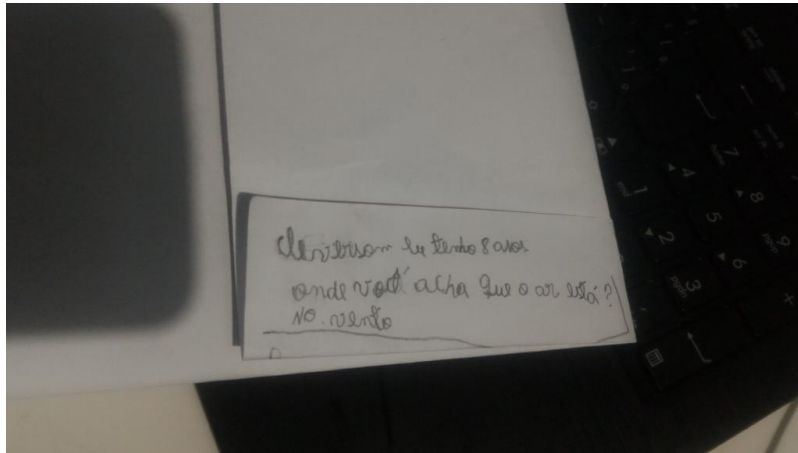 Cleversom Eu tenho 8 anos
onde você acha Que o ar está?
NO. vento